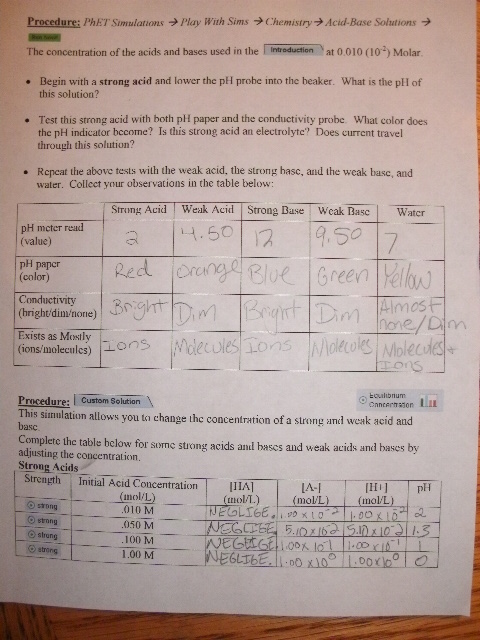 Procedure: PhET Simulations → Play With Sims → Chemistry → Acid-Base Solutions →
The concentration of the acids and bases used in the Introduction at 0.010 (10⁻²) Molar.
• Begin with a strong acid and lower the pH probe into the beaker. What is the pH of
this solution?
• Test this strong acid with both pH paper and the conductivity probe. What color does
the pH indicator become? Is this strong acid an electrolyte? Does current travel
through this solution?
• Repeat the above tests with the weak acid, the strong base, and the weak base, and
water. Collect your observations in the table below:
Strong Acid Weak Acid Strong Base Weak Base Water
pH meter read
(value) 2 4.50 12 9.50 7
pH paper
(color) Red Orange Blue Green Yellow
Conductivity
(bright/dim/none) Bright Dim Bright Dim Almost
none/Dim
Exists as Mostly
(ions/molecules) Ions Molecules Ions Molecules Molecules +
Ions
Procedure: Custom Solution
Equilibrium
Concentration
This simulation allows you to change the concentration of a strong and weak acid and
base.
Complete the table below for some strong acids and bases and weak acids and bases by
adjusting the concentration.
Strong Acids
Strength Initial Acid Concentration [HA] [A-] [H+] pH
(mol/L) (mol/L) (mol/L) (mol/L)
strong .010 M NEGLIGE. 1.00 x 10⁻² 1.00 x 10⁻² 2
strong .050 M NEGLIGE 5.10 x 10⁻² 5.10 x 10⁻² 1.3
strong .100 M NEGLIGE. 1.00 x 10⁻¹ 1.00 x 10⁻¹ 1
strong 1.00 M NEGLIGE. 1.00 x 10⁰ 1.00 x 10⁰ 0